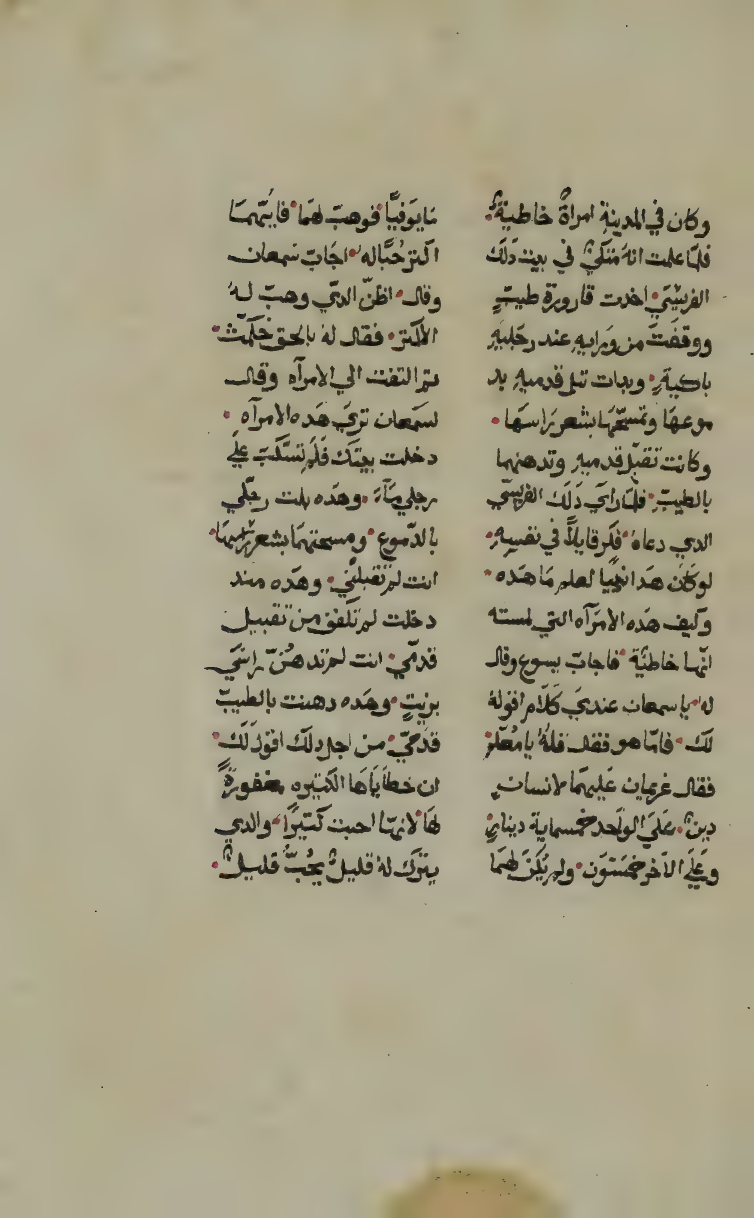 وكان في المدينة امراة خاطية
فلما علمت انه متكي في بيت دلك
الفريسي اخدت قارورة طيب
ووقفت من ورايه عند رجليه
باكية وبدات تبل قدميه بد
موعها وتمسحها بشعر راسها
وكانت تقبل قدميه وتدهنهما
بالطيب فلما راي دلك الفريسي
الدي دعاه فكر قايلا في نفسه
لو كان هدا نبيا لعلم ما هده
وكيف هده الامراه التي لمسته
انها خاطية فاجاب يسوع وقال
له يا سمعان عندي كلام اقوله
لك فاما هو فقال قله يا معلم
فقال غريمان عليهما لانسان
دين علي الواحد خمسماية دينار
وعلي الاخر خمسون ولم يكن لهما
ما يوفيا فوهب لهما فايهما
اكتر حبا له اجاب سمعان
وقال اظن الدي وهب له
الاكتر فقال له بالحق حكمت
تم التفت الي الامراه وقال
لسمعان تري هده الامراه
دخلت بيتك فلم تسكب علي
رجلي ماء وهده بلت رجلي
بالدموع ومسحتهما بشعر راسها
انت لم تقبلني وهده مند
دخلت لم تكفف من تقبيل
قدمي انت لم تدهن راسي
بزيت وهده دهنت بالطيب
قدمي من اجل دلك اقول لك
ان خطاياها الكتيره مغفورة
لها لانها احبت كتيرا والدي
يترك له قليل يحب قليل